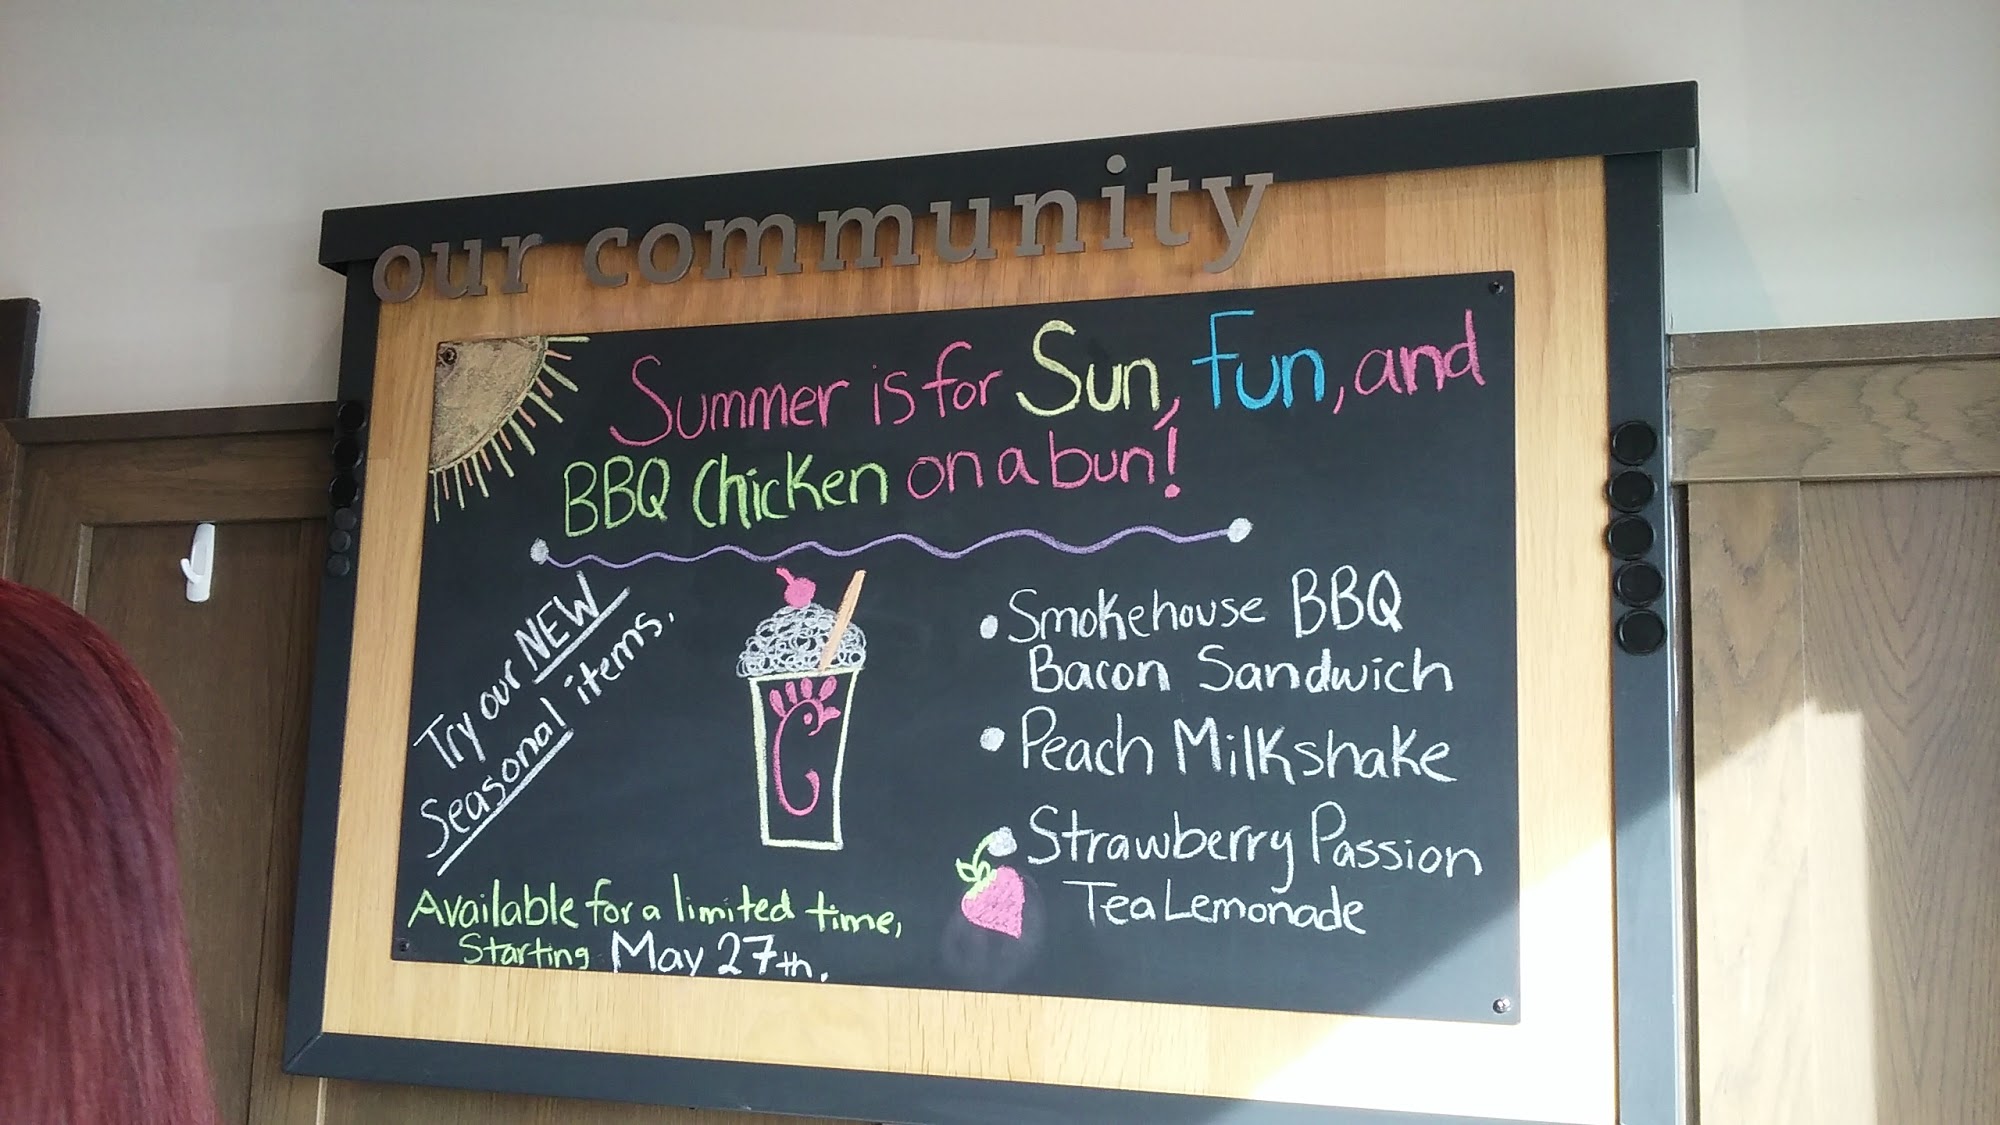 our community
Summer is for Sun, Fun, and
BBQ Chicken on a bun!
Try our NEW
Seasonal items.
• Smokehouse BBQ
Bacon Sandwich
• Peach Milkshake
• Strawberry Passion
Tea Lemonade
Available for a limited time,
Starting May 27th.